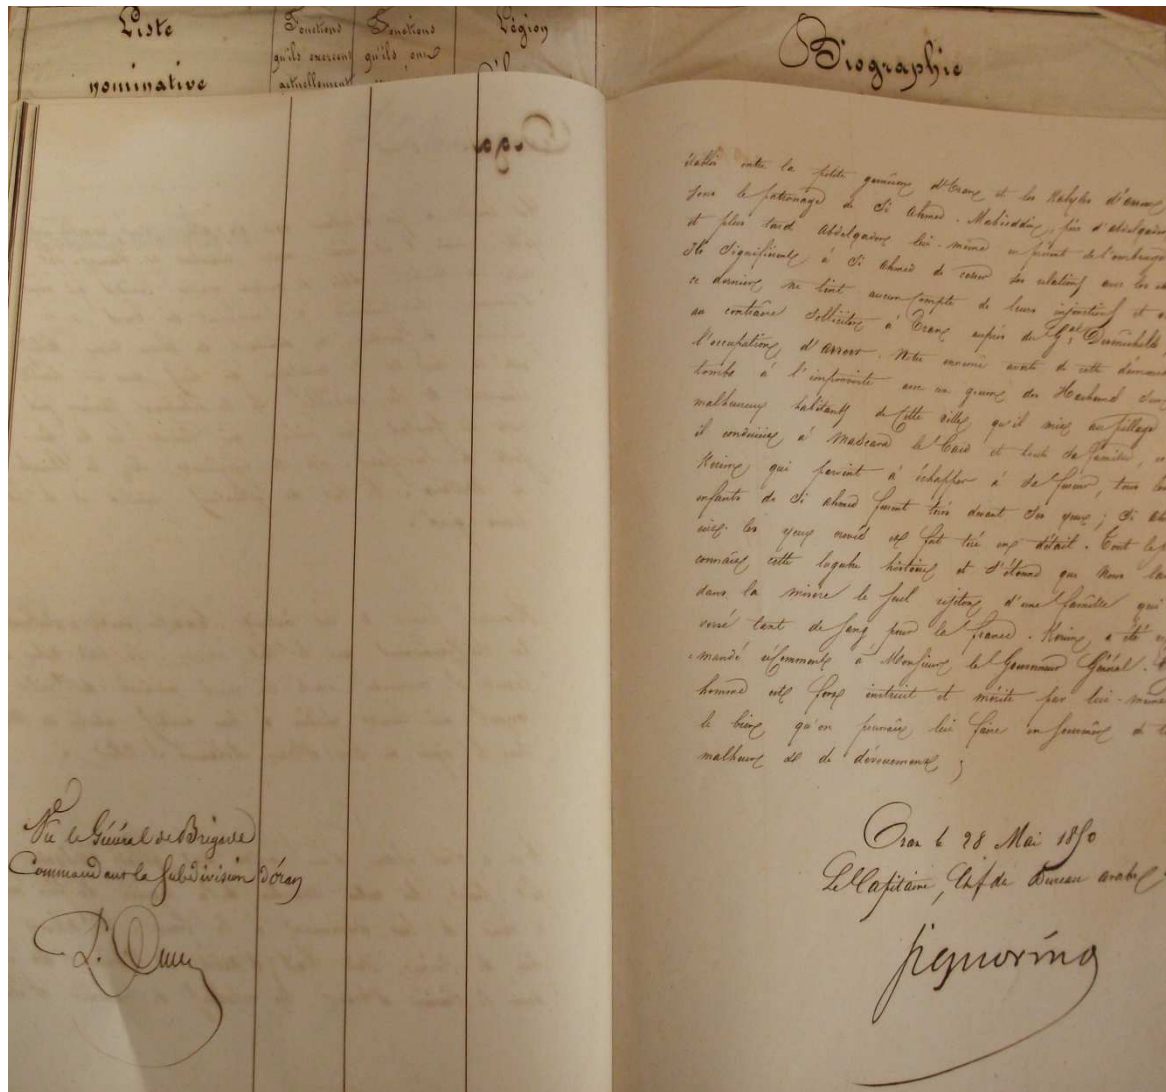 Liste
nominative
Fonctions
qu'ils exercent
actuellement
Fonctions
qu'ils ont
Légion
Biographie
établi entre la petite garnison d'Oran et les Kabyles d'arzew
sous le patronage de Si Ahmed. Mahieddin, père d'abdelqader
et plus tard Abdelqader lui-même en prirent de l'ombrage
Ils signifièrent à Si Ahmed de cesser ses relations avec les
ce dernier ne tint aucun compte de leurs injonctions et
au contraire solliciter à Oran auprès du Gal Desmichels
l'occupation d'arzew. Notre ennemi averti de cette démarche
tomba à l'improviste avec un goum des Hachend sur
malheureux habitants de cette ville qu'il mit au pillage
il conduisit à Mascara le Caïd et toute sa famille,
Kouïme qui parvint à échapper à sa fureur, tous les
enfants de Si Ahmed furent tués devant ses yeux; Si
les yeux crevés et fut tué en détail. Tout le
connait cette lugubre histoire et s'étonne que nous
dans la misère le seul rejeton d'une famille qui
versé tant de sang pour la france. a été
mandé récemment à Monsieur le Gouverneur Général.
homme est fort instruit et mérite par lui-même
le bien qu'on pourrait lui faire en souvenir de
malheurs et de dévouement;
Oran le 28 Mai 1850
Le Capitaine, Chef du Bureau arabe
Signorino
Vu le Général de Brigade
Commandant la Subdivision d'Oran